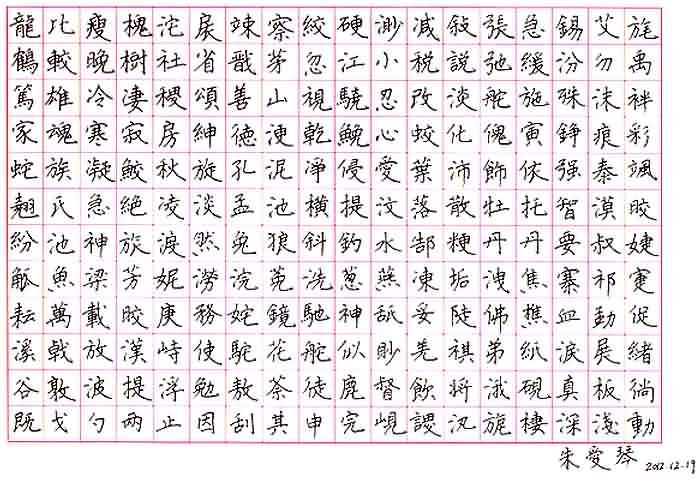 龍比瘦槐沱戾竦察絞硬渺减敍張急錫艾旄
鶴較晚樹社省戬茅忽江小税説弛緩汾勿禹
篤雄冷凄稷頌善山視驍忍改淡舵施殊沫袢
家魂寒寂房紳德浭乾鮸心蛟化傀寅錚痕彩
蛇族凝鮫秋旋孔泥凈侵愛葉沛飾依强泰颯
翹氏急絕凌淡孟池橫提汶落散牡托智漠皎
紛池神旅淚然兔狼斜釣水郜粳丹丹要叔婕
觚魚梁芳妮澇浣菀洗蔥燕凍垢洩焦寨祁寁
耘萬載皎庚務姹鏡馳神舐妥陡佛樵血勤促
溪戟放漢峙使駝花舵似眇羌祺弟紙淚展緒
谷敦波提浮勉敖荼徒鹿督飲將浱硯真板徜
既戈勺兩止因刮其申完峴謖汎旎棲深淺動
朱愛琴 2012.12.19